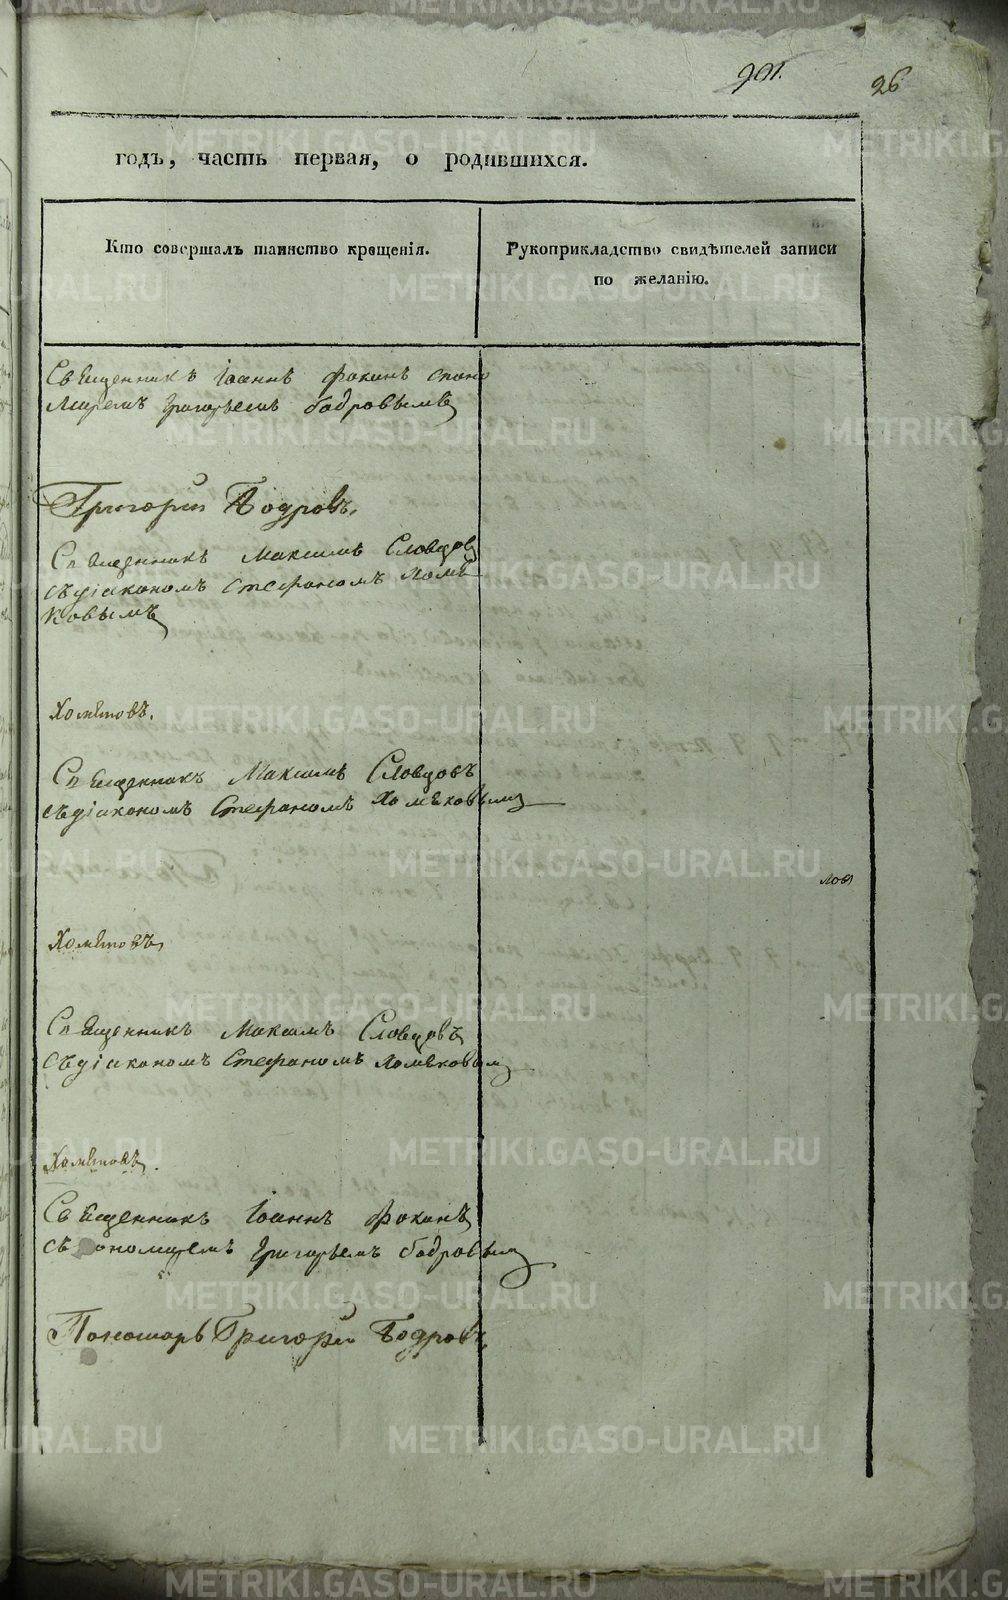 901.
26
годъ, часть первая, о родившихся.
Кто совершалъ таинство крещенія.
Рукоприкладство свидѣтелей записи
по желанію.
Священникъ Іоаннъ Фокинъ спано
маремъ Григорьемъ бодровымъ
Григорій Бодровъ.
Священникъ Максимъ Словцовъ
съ діакономъ Стефаномъ Хомѣ
ковымъ
Хомѣковъ.
Священникъ Максимъ Словцовъ
съ діакономъ Стефаномъ Хомѣковымъ
Хомѣковъ
Священникъ Максимъ Словцовъ
съ діакономъ Стефаномъ Хомѣковымъ
Хомѣковъ.
Священникъ Іоаннъ Фокинъ
съ пономаремъ Григорьемъ бодровымъ
Пономарь Григорій Бодровъ.
METRIKI.GASO-URAL.RU